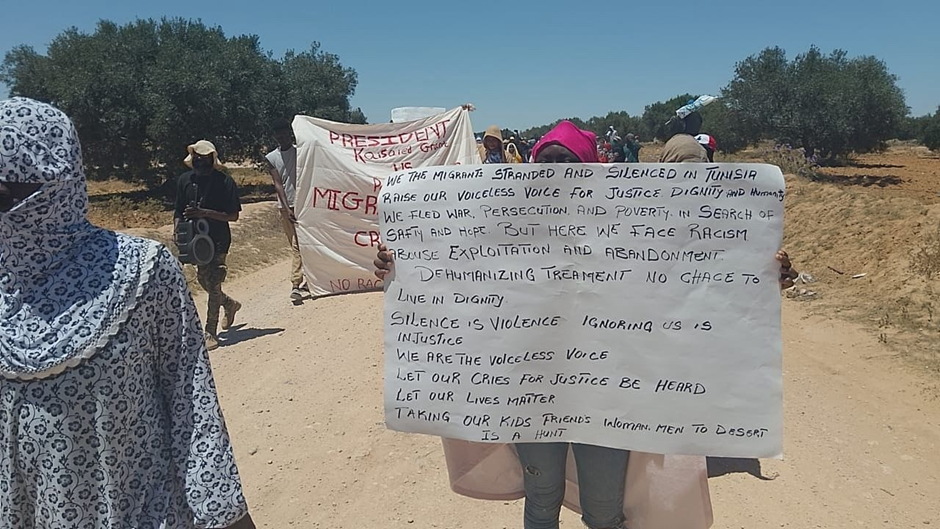 PRESIDENT
Kaisaied Grant
US
MIGR
CRI
NO RAC
WE THE MIGRANTS STRANDED AND SILENCED IN TUNISIA
RAISE OUR VOICELESS VOICE FOR JUSTICE DIGNITY AND HUMANITY
WE FLED WAR, PERSECUTION, AND POVERTY, IN SEARCH OF
SAFTY AND HOPE. BUT HERE WE FACE RACISM
ABOUSE EXPLOITATION AND ABANDONMENT
DEHUMANIZING TREAMENT NO CHACE TO
LIVE IN DIGNITY
SILENCE IS VIOLENCE IGNORING US IS
INJUSTICE
WE ARE THE VOICELESS VOICE
LET OUR CRIES FOR JUSTICE BE HEARD
LET OUR LIVES MATTER
TAKING OUR KIDS FRIENDS WOMAN. MEN TO DESERT
IS A HUNT